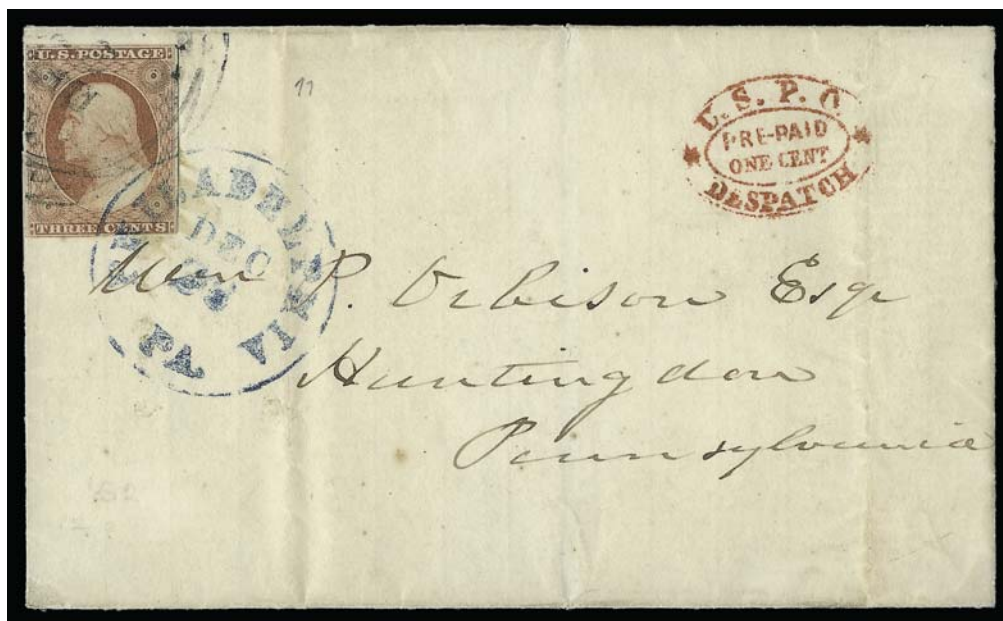 U.S. POSTAGE
THREE CENTS
11
U. S. P. O
PRE-PAID
ONE CENT
DESPATCH
PHILADELPHIA
DEC
PA.
Wm P. Orbison Esqr
Huntingdon
Pennsylvania